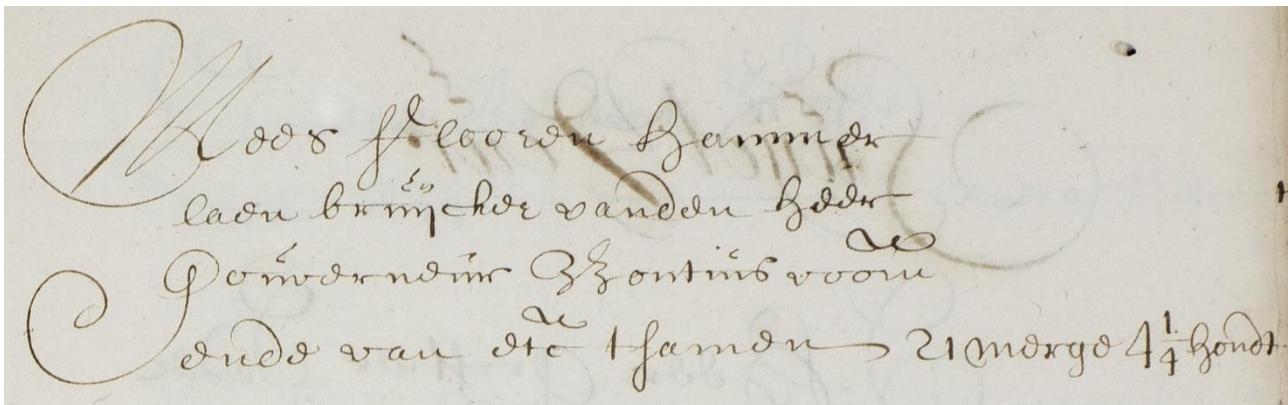 Mees Flooren Hammer
laen bruijcker vanden Heer
Gouverneur Zontius voorn
ende van etc thamen 21 merge 4 1/4 hondt